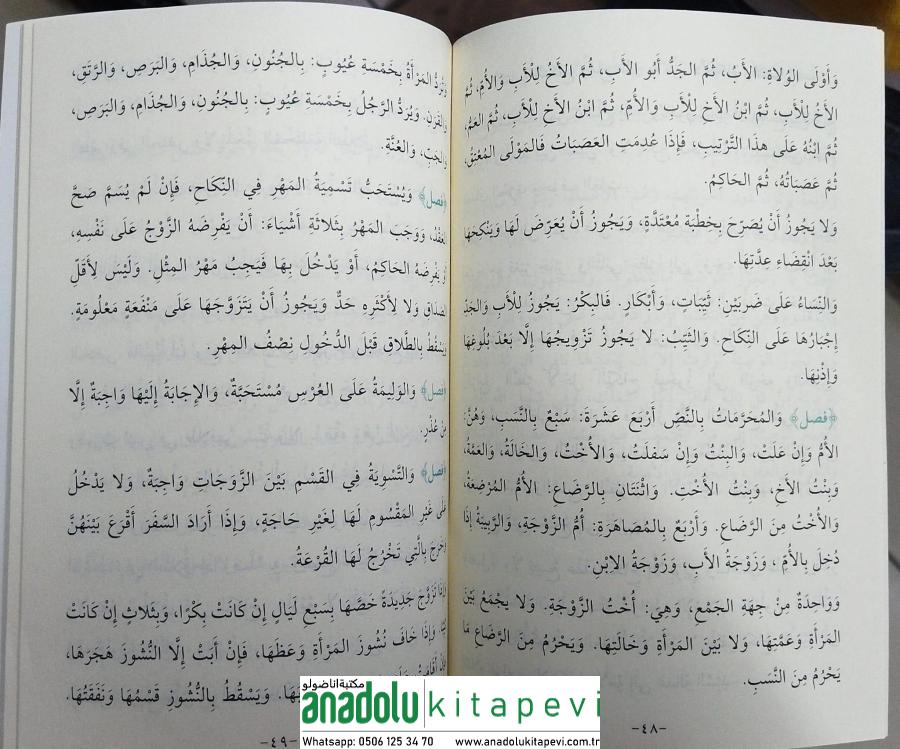 وَأَوْلَى الوُلاةِ: الأَبُ، ثُمَّ الجَدُّ أَبُو الأَبِ، ثُمَّ الأَخُ لِلْأَبِ وَالأُمِّ، ثُمَّ
الأَخُ لِلْأَبِ، ثُمَّ ابْنُ الأَخِ لِلْأَبِ وَالأُمِّ، ثُمَّ ابْنُ الأَخِ لِلْأَبِ، ثُمَّ العَمُّ،
ثُمَّ ابْنُهُ عَلَى هذَا التَّرْتِيبِ، فَإِذَا عُدِمَتِ العَصَبَاتُ فَالمَوْلَى المُعْتِقُ،
ثُمَّ عَصَبَاتُهُ، ثُمَّ الحَاكِمُ.
وَلا يَجُوزُ أَنْ يُصَرِّحَ بِخِطْبَةِ مُعْتَدَّةٍ، وَيَجُوزُ أَنْ يُعَرِّضَ لَهَا وَيَنْكِحَهَا
بَعْدَ انْقِضَاءِ عِدَّتِهَا.
وَالنِّسَاءُ عَلَى ضَرْبَيْنِ: ثَيِّبَاتٍ، وَأَبْكَارٍ. فَالبِكْرُ: يَجُوزُ لِلْأَبِ وَالجَدِّ
إِجْبَارُهَا عَلَى النِّكَاحِ. وَالثَّيِّبُ: لا يَجُوزُ تَزْوِيجُهَا إِلَّا بَعْدَ بُلُوغِهَا
وَإِذْنِهَا.
﴿فصل﴾ وَالمُحَرَّمَاتُ بِالنَّصِّ أَرْبَعَ عَشْرَةَ: سَبْعٌ بِالنَّسَبِ، وَهُنَّ:
الأُمُّ وَإِنْ عَلَتْ، وَالبِنْتُ وَإِنْ سَفَلَتْ، وَالأُخْتُ، وَالخَالَةُ، وَالعَمَّةُ،
وَبِنْتُ الأَخِ، وَبِنْتُ الأُخْتِ. وَاثْنَتَانِ بِالرَّضَاعِ: الأُمُّ المُرْضِعَةُ،
وَالأُخْتُ مِنَ الرَّضَاعِ. وَأَرْبَعٌ بِالمُصَاهَرَةِ: أُمُّ الزَّوْجَةِ، وَالرَّبِيبَةُ إِذَا
دُخِلَ بِالأُمِّ، وَزَوْجَةُ الأَبِ، وَزَوْجَةُ الِابْنِ.
وَوَاحِدَةٌ مِنْ جِهَةِ الجَمْعِ، وَهِيَ: أُخْتُ الزَّوْجَةِ. وَلا يَجْمَعُ بَيْنَ
المَرْأَةِ وَعَمَّتِهَا، وَلا بَيْنَ المَرْأَةِ وَخَالَتِهَا. وَيَحْرُمُ مِنَ الرَّضَاعِ مَا
يَحْرُمُ مِنَ النَّسَبِ.
-٤٨-
وَيُرَدُّ المَرْأَةُ بِخَمْسَةِ عُيُوبٍ: بِالجُنُونِ، وَالجُذَامِ، وَالبَرَصِ، وَالرَّتَقِ،
وَالقَرَنِ. وَيُرَدُّ الرَّجُلُ بِخَمْسَةِ عُيُوبٍ: بِالجُنُونِ، وَالجُذَامِ، وَالبَرَصِ،
وَالجَبِّ، وَالعُنَّةِ.
﴿فصل﴾ وَيُسْتَحَبُّ تَسْمِيَةُ المَهْرِ فِي النِّكَاحِ، فَإِنْ لَمْ يُسَمَّ صَحَّ
العَقْدُ، وَوَجَبَ المَهْرُ بِثَلاثَةِ أَشْيَاءَ: أَنْ يَفْرِضَهُ الزَّوْجُ عَلَى نَفْسِهِ،
أَوْ يَفْرِضَهُ الحَاكِمُ، أَوْ يَدْخُلَ بِهَا فَيَجِبُ مَهْرُ المِثْلِ. وَلَيْسَ لِأَقَلِّ
الصَّدَاقِ وَلا لِأَكْثَرِهِ حَدٌّ وَيَجُوزُ أَنْ يَتَزَوَّجَهَا عَلَى مَنْفَعَةٍ مَعْلُومَةٍ.
وَيَسْقُطُ بِالطَّلاقِ قَبْلَ الدُّخُولِ نِصْفُ المِهْرِ.
﴿فصل﴾ وَالوَلِيمَةُ عَلَى العُرْسِ مُسْتَحَبَّةٌ، وَالإِجَابَةُ إِلَيْهَا وَاجِبَةٌ إِلَّا
مِنْ عُذْرٍ.
﴿فصل﴾ وَالتَّسْوِيَةُ فِي القَسْمِ بَيْنَ الزَّوَجَاتِ وَاجِبَةٌ، وَلا يَدْخُلُ
عَلَى غَيْرِ المَقْسُومِ لَهَا لِغَيْرِ حَاجَةٍ، وَإِذَا أَرَادَ السَّفَرَ أَقْرَعَ بَيْنَهُنَّ
وَخَرَجَ بِالَّتِي تَخْرُجُ لَهَا القُرْعَةُ.
وَإِذَا تَزَوَّجَ جَدِيدَةً خَصَّهَا بِسَبْعِ لَيَالٍ إِنْ كَانَتْ بِكْرًا، وَبِثَلاثٍ إِنْ كَانَتْ
وَإِذَا خَافَ نُشُوزَ المَرْأَةِ وَعَظَهَا، فَإِنْ أَبَتْ إِلَّا النُّشُوزَ هَجَرَهَا،
وَيَسْقُطُ بِالنُّشُوزِ قَسْمُهَا وَنَفَقَتُهَا.
-٤٩-
مكتبة اناضولو
anadolukitapevi
Whatsapp: 0506 125 34 70 www.anadolukitapevi.com.tr